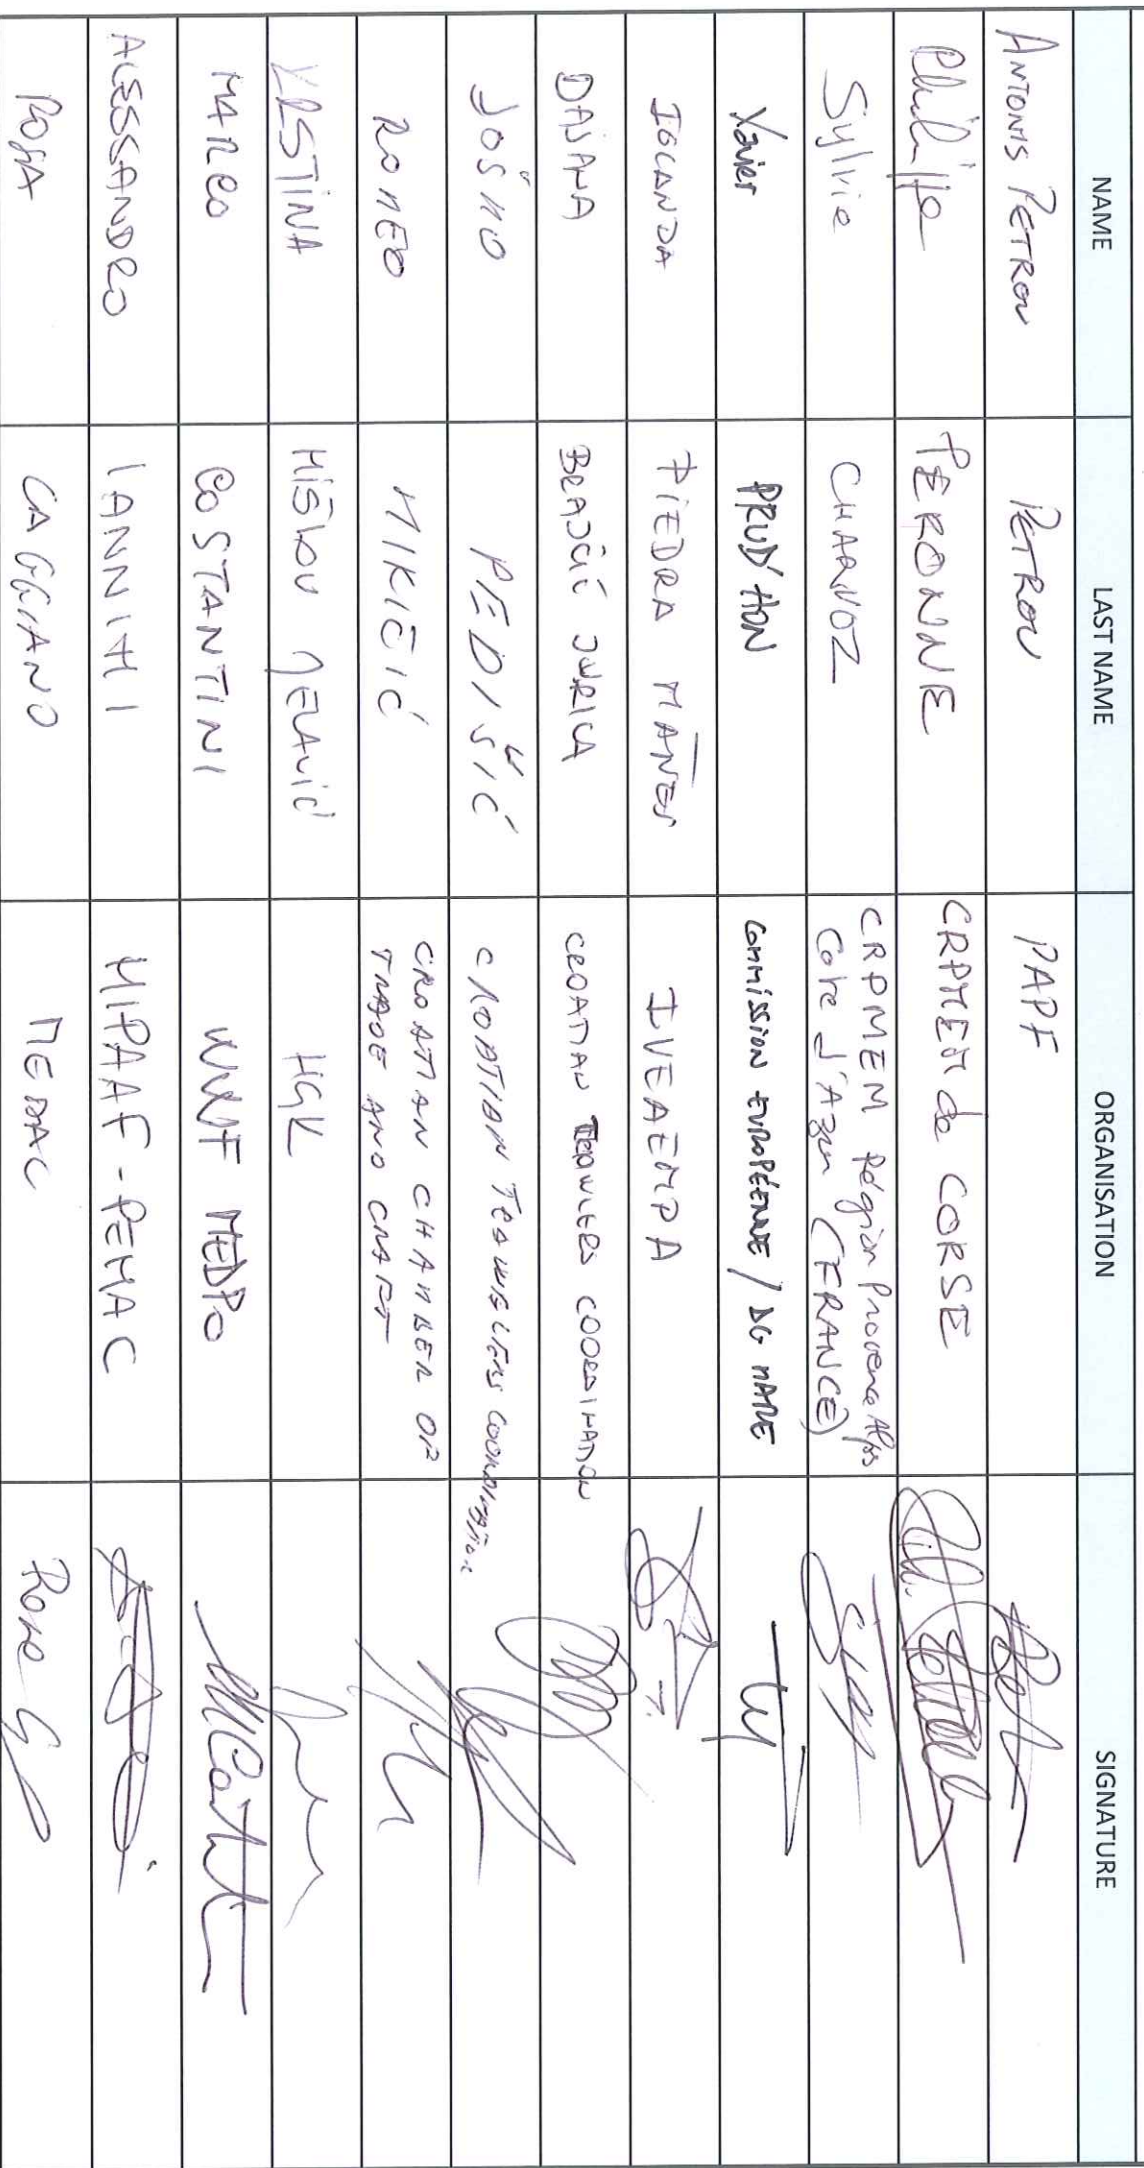 NAME LAST NAME ORGANISATION SIGNATURE
ANTONIS PETROU PETROU PAPF
Philippe PERONNE CRPMEM de CORSE
Sylvie CHARVOZ CRPMEM Région Provence Alpes
Cote d'Azur (FRANCE)
Xavier PRUD'HON COMMISSION EUROPÉENNE / DG MARE
IOLANDA PIEDRA MAÑES IVEAEMPA
DAJANA BRAJČIĆ JURICA CROATIAN TRAWLERS COORDINATION
JOŠKO PEDIŠIĆ CROATIAN TRAWLERS COORDINATION
ROMEO MIKIČIĆ CROATIAN CHAMBER OF
TRADE AND CRAFT
KRSTINA MIŠLOV JELAVIĆ HGK
MARCO COSTANTINI WWF MEDPO
ALESSANDRO IANNITTI MIPAAF-PEMAC
ROSA CAGGIANO MEDAC